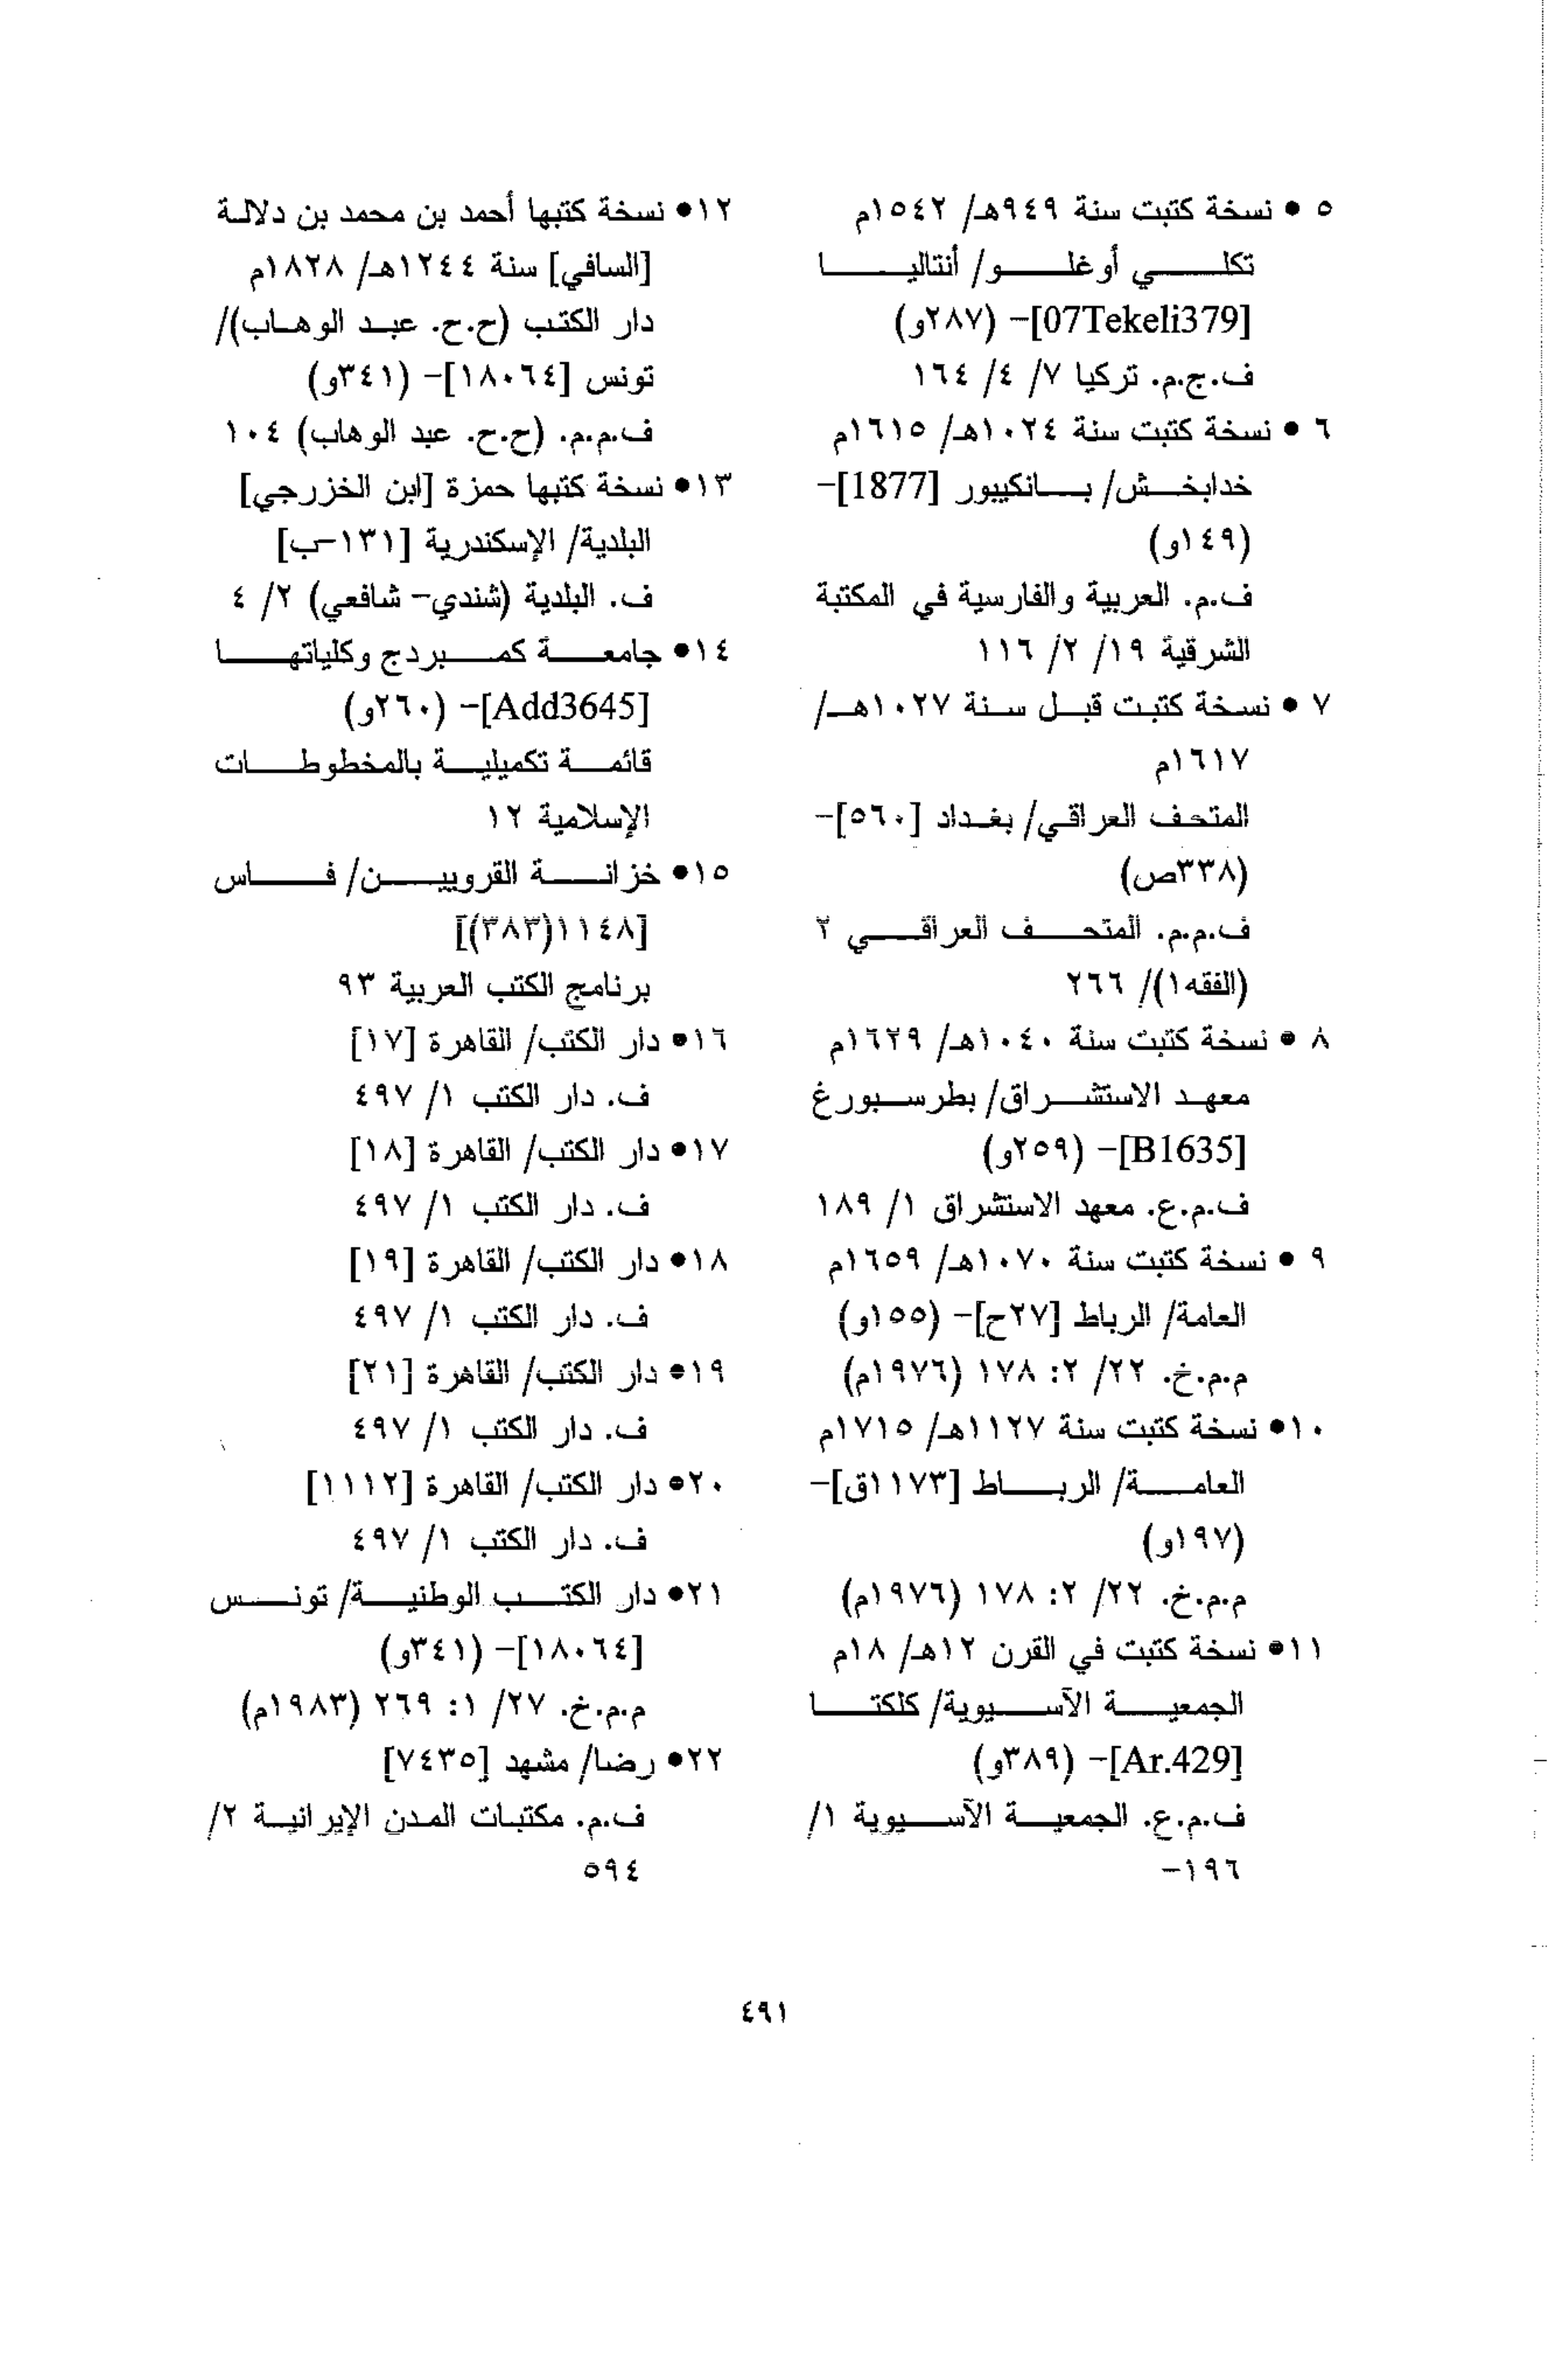 ٥ • نسخة كتبت سنة ٩٤٩هـ/ ١٥٤٢م
تكلي أوغلو/ أنتاليا
[07Tekeli379]- (٢٨٧و)
ف.ج.م. تركيا ٧/ ٤/ ١٦٤
٦ • نسخة كتبت سنة ١٠٢٤هـ/ ١٦١٥م
خدابخش/ بانكيبور [1877]-
(١٤٩و)
ف.م. العربية والفارسية في المكتبة
الشرقية ١٩/ ٢/ ١١٦
٧ • نسخة كتبت قبل سنة ١٠٢٧هـ/
١٦١٧م
المتحف العراقي/ بغداد [٥٦٠]-
(٣٣٨ص)
ف.م.م. المتحف العراقي ٢
(الفقه١)/ ٢٦٦
٨ • نسخة كتبت سنة ١٠٤٠هـ/ ١٦٢٩م
معهد الاستشراق/ بطرسبورغ
[B1635]- (٢٥٩و)
ف.م.ع. معهد الاستشراق ١/ ١٨٩
٩ • نسخة كتبت سنة ١٠٧٠هـ/ ١٦٥٩م
العامة/ الرباط [٢٧ح]- (١٥٥و)
م.م.خ. ٢٢/ ٢: ١٧٨ (١٩٧٦م)
١٠• نسخة كتبت سنة ١١٢٧هـ/ ١٧١٥م
العامة/ الرباط [١١٧٣ق]-
(١٩٧و)
م.م.خ. ٢٢/ ٢: ١٧٨ (١٩٧٦م)
١١• نسخة كتبت في القرن ١٢هـ/ ١٨م
الجمعية الآسيوية/ كلكتا
[Ar.429]- (٣٨٩و)
ف.م.ع. الجمعية الآسيوية ١/
١٩٦-
١٢• نسخة كتبها أحمد بن محمد بن دلالة
[السافي] سنة ١٢٤٤هـ/ ١٨٢٨م
دار الكتب (ح.ح. عبد الوهاب)/
تونس [١٨٠٦٤]- (٣٤١و)
ف.م.م. (ح.ح. عبد الوهاب) ١٠٤
١٣• نسخة كتبها حمزة [ابن الخزرجي]
البلدية/ الإسكندرية [١٣١-ب]
ف. البلدية (شندي- شافعي) ٢/ ٤
١٤• جامعة كمبردج وكلياتها
[Add3645]- (٢٦٠و)
قائمة تكميلية بالمخطوطات
الإسلامية ١٢
١٥• خزانة القرويين/ فاس
[١١٤٨(٣٨٣)]
برنامج الكتب العربية ٩٣
١٦• دار الكتب/ القاهرة [١٧]
ف. دار الكتب ١/ ٤٩٧
١٧• دار الكتب/ القاهرة [١٨]
ف. دار الكتب ١/ ٤٩٧
١٨• دار الكتب/ القاهرة [١٩]
ف. دار الكتب ١/ ٤٩٧
١٩• دار الكتب/ القاهرة [٢١]
ف. دار الكتب ١/ ٤٩٧
٢٠• دار الكتب/ القاهرة [١١١٢]
ف. دار الكتب ١/ ٤٩٧
٢١• دار الكتب الوطنية/ تونس
[١٨٠٦٤]- (٣٤١و)
م.م.خ. ٢٧/ ١: ٢٦٩ (١٩٨٣م)
٢٢• رضا/ مشهد [٧٤٣٥]
ف.م. مكتبات المدن الإيرانية ٢/
٥٩٤
٤٩١